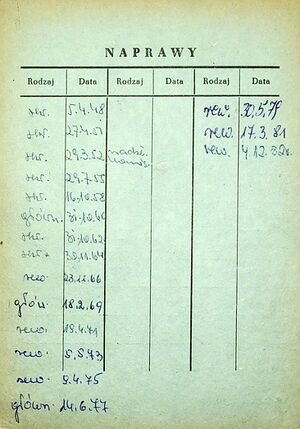 NAPRAWY
Rodzaj Data Rodzaj Data Rodzaj Data
śr. 5.4.48 rew. 30.5.79
śr. 27.4.51 rew. 17.3.81
śr. 29.3.52 rew. 4.12.82r.
śr. 29.7.55
śr. 16.10.58
główn. 31.10.60
śr. 31.10.62
śr. 30.11.64
rew. 23.12.66
główn. 18.2.69
rew. 19.4.71
rew. 5.5.73
rew. 9.4.75
główn. 14.6.77